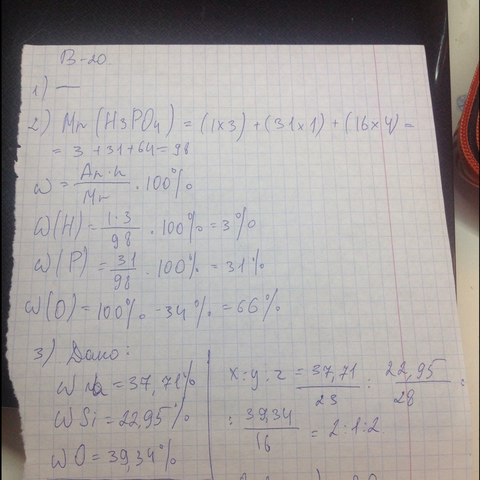 В-20
1) —
2) Mr (H3PO4) = (1x3) + (31x1) + (16x4) =
= 3 + 31 + 64 = 98
ω = Ar·n / Mr · 100%
ω(H) = 1·3 / 98 · 100% = 3%
ω(P) = 31 / 98 · 100% = 31%
ω(O) = 100% - 34% = 66%
3) Дано:
ω Na = 37,71%
ω Si = 22,95%
ω O = 39,34%
x:y:z = 37,71 / 23 : 22,95 / 28 :
: 39,34 / 16 = 2:1:2